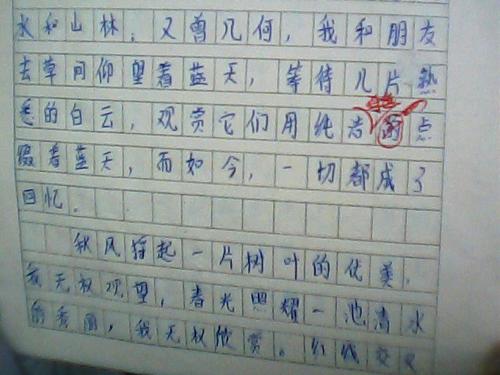 水和山林；又曾几何，我和朋友
去草间仰望着蓝天，等待几片熟
悉的白云，观赏它们用纯洁的点
缀着蓝天，而如今，一切都成了
回忆。
秋风捋起一片树叶的优美，
我无权观望，春光照耀一池清水
的秀丽，我无权欣赏。红线交